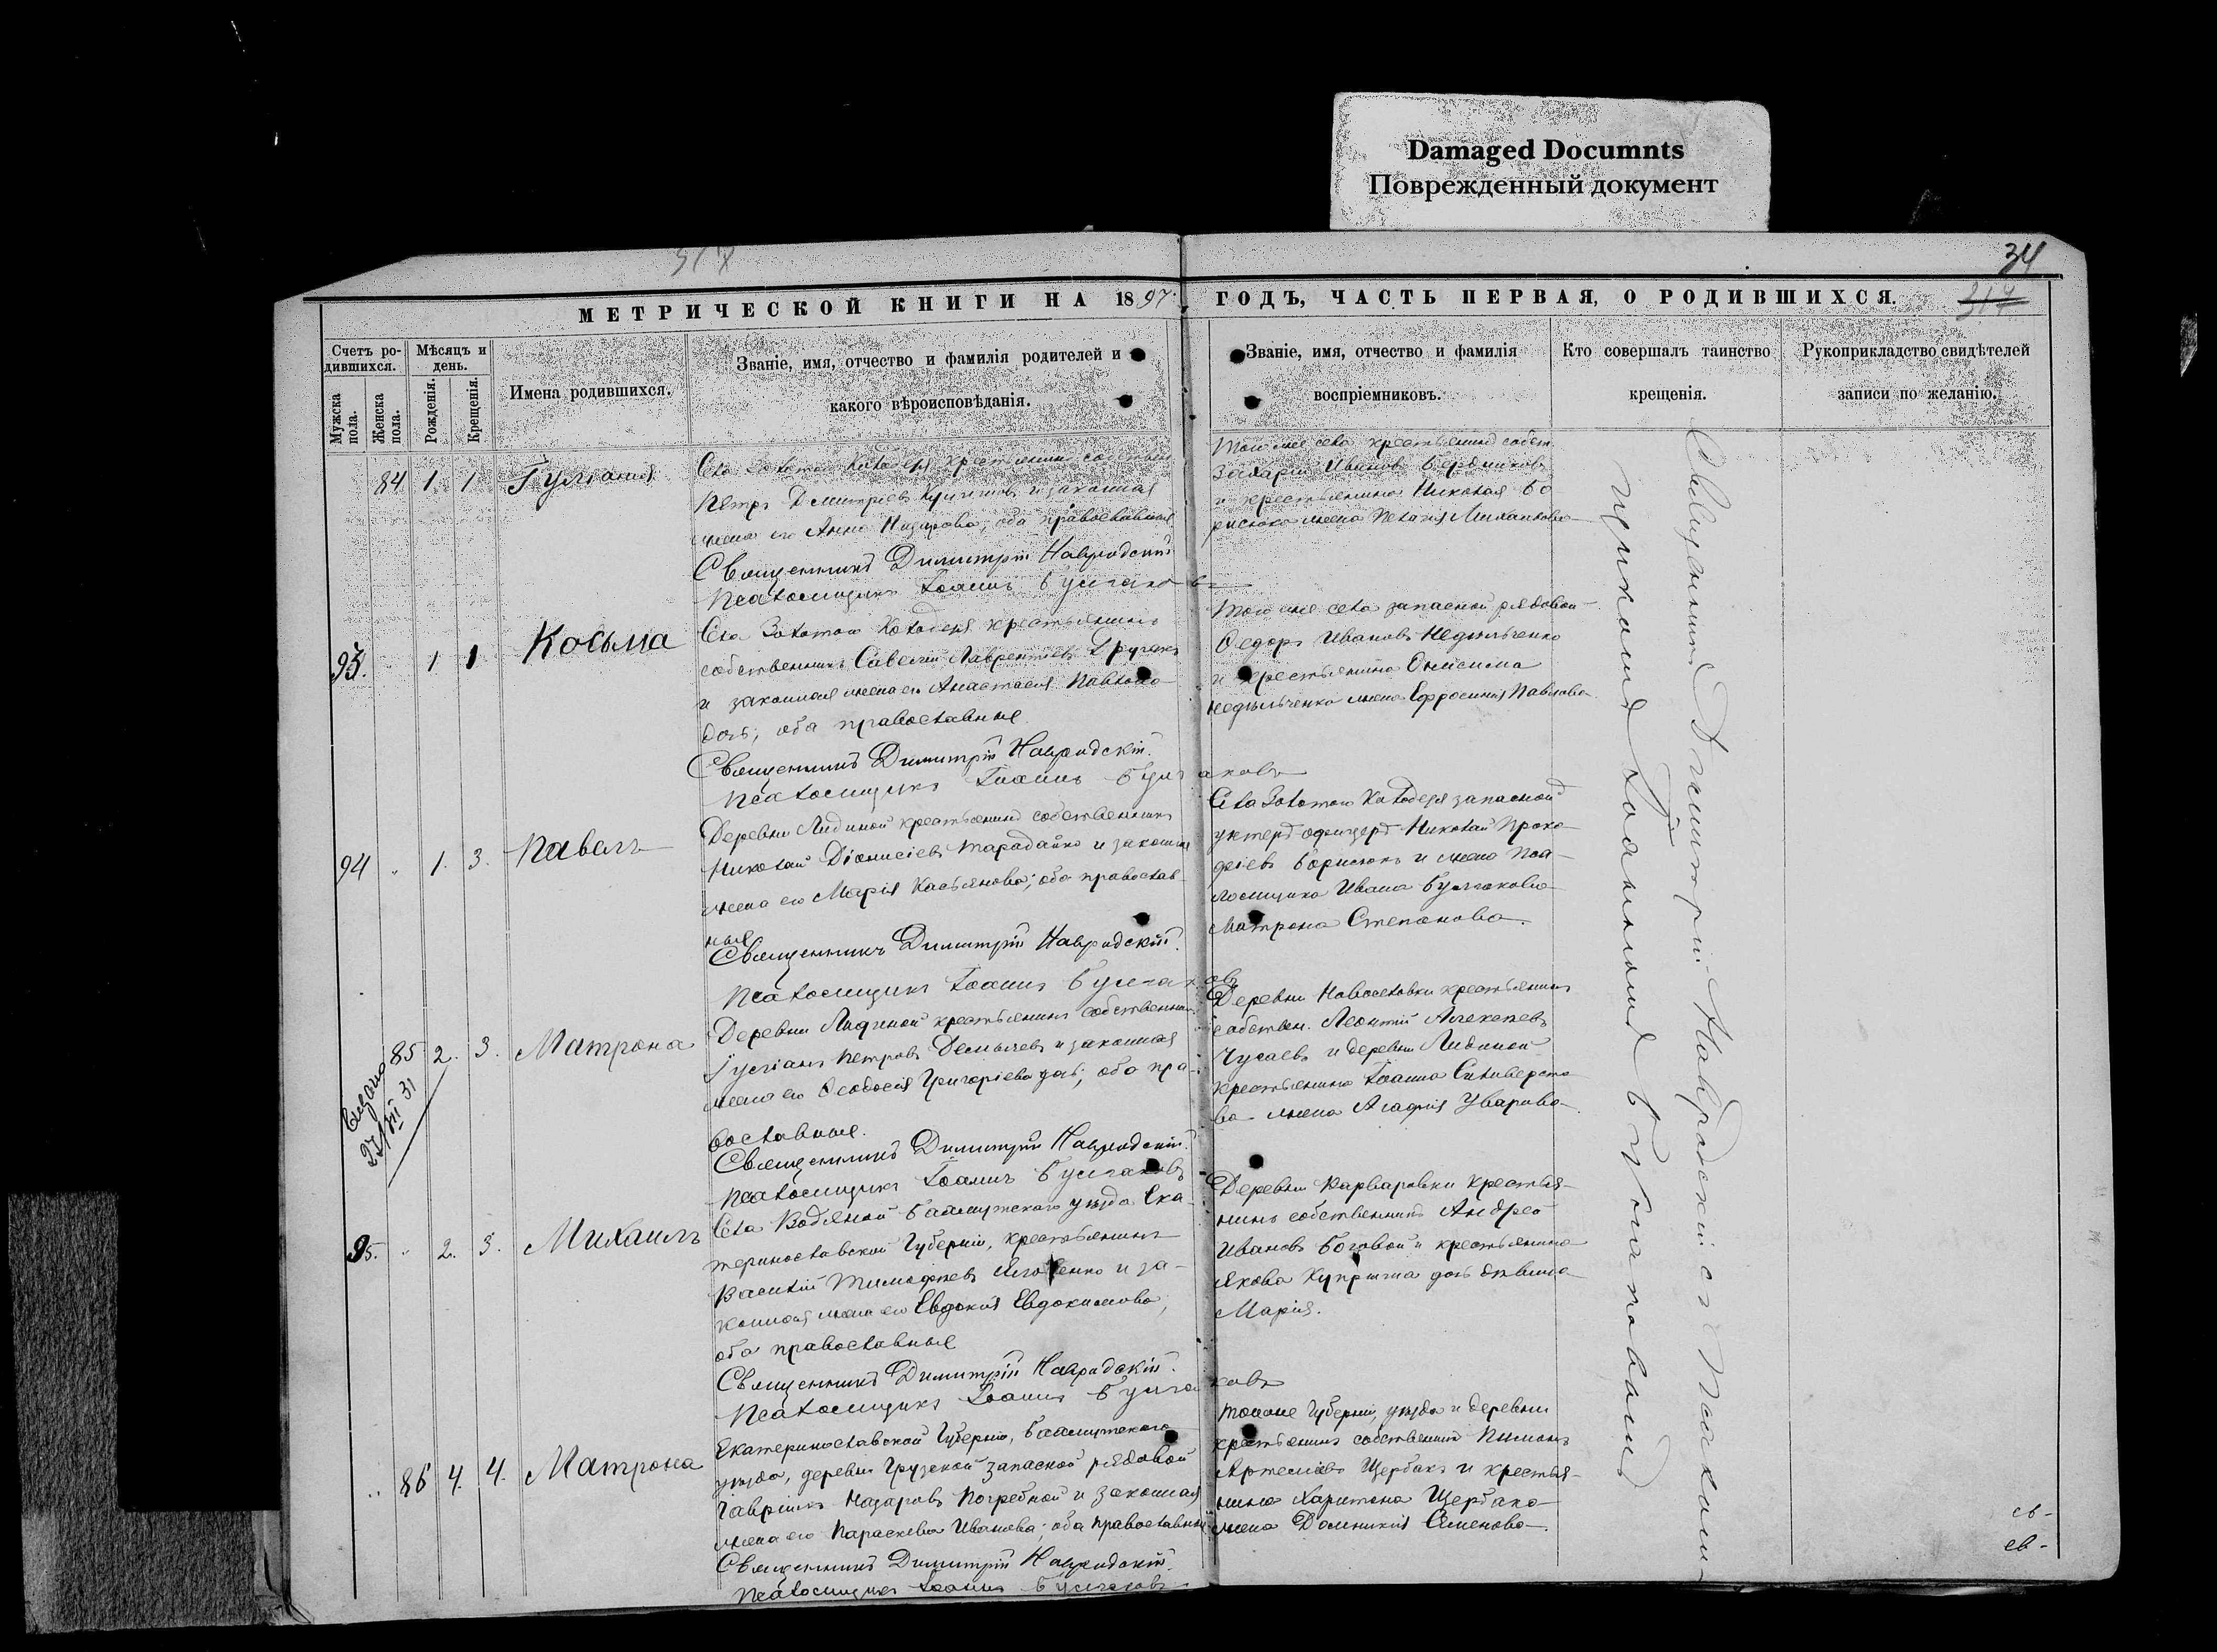 Damaged Documnts
Поврежденный документ
34
МЕТРИЧЕСКОЙ КНИГИ НА 1897 ГОДЪ, ЧАСТЬ ПЕРВАЯ, О РОДИВШИХСЯ.
Счетъ ро-
дившихся.
Мужска пола.
Женска пола.
Мѣсяцъ и
день.
Рожденія.
Крещенія.
Имена родившихся.
Званіе, имя, отчество и фамилія родителей и
какого вѣроисповѣданія.
Званіе, имя, отчество и фамилія
воспріемниковъ.
Кто совершалъ таинство
крещенія.
Рукоприкладство свидѣтелей
записи по желанію.
84 1. 1 Іуліанія
Села Золотого Колодезя крестьянинъ собствен
Петръ Дмитріевъ и законная
жена его Анна Назарова, оба православные
Священникъ Димитрій Навродскій
Псаломщикъ Іоаннъ Булгаковъ
Того же села крестьянинъ собст.
Захарій Ивановъ Бердниковъ
и крестьянина Николая Бо
рисюка жена Пелагія Михайлова
93. 1. 1 Косьма
Села Золотого Колодезя крестьянинъ
собственникъ Савелій Лаврентіевъ
и законная жена его Анастасія Павлова
дочь; оба православные
Священникъ Димитрій Навродскій.
Псаломщикъ Іоаннъ Булгаковъ
Того же села запасной рядовой
Ѳедоръ Ивановъ Недѣльченко
и крестьянина Онисима
Недѣльченко жена Ефросинія Павлова
94 1. 3. Павелъ
Деревни Лидиной крестьянинъ собственникъ
Николай Діонисіевъ Тарадайко и законная
жена его Марія Касьянова; оба православ-
ные
Священникъ Димитрій Навродскій.
Псаломщикъ Іоаннъ Булгаковъ
Села Золотого Колодезя запасной
унтеръ-офицеръ Николай Проко-
фіевъ Борисюкъ и жена Пса-
ломщика Ивана Булгакова
Матрона Степанова.
85 2. 3. Матрона
Деревни Лидиной крестьянинъ собственникъ
Іуліанъ Петровъ и законная
жена его Ѳеодосія Григоріева дочь; оба пра-
вославные.
Священникъ Димитрій Навродскій.
Псаломщикъ Іоаннъ Булгаковъ
Деревни Новоселовки крестьянинъ
собствен. Леонтій Алексѣевъ
Чусаевъ и деревни Лидиной
крестьянина Іоанна Силиверсто
ва жена Агафія Уварова.
95. 2. 3. Михаилъ
Села Водяной Бахмутскаго уѣзда Ека-
теринославской Губерніи, крестьянинъ
Василій Тимофѣевъ и за-
конная жена его Евдокія Евдокимова,
оба православные
Священникъ Димитрій Навродскій.
Псаломщикъ Іоаннъ Булгаковъ
Деревни Варваровки крестья-
нинъ собственникъ Андрей
Ивановъ Боговой и крестьянина
Якова дочь дѣвица
Марія.
86 4. 4. Матрона
Екатеринославской Губерніи, Бахмутскаго
уѣзда, деревни Грузской запасной рядовой
Гавріилъ Назаровъ Погребной и законная
жена его Параскева Иванова; оба православные
Священникъ Димитрій Навродскій.
Псаломщикъ Іоаннъ Булгаковъ
Той же Губерніи, уѣзда и деревни
крестьянинъ собственникъ Пименъ
Артемьевъ Щербакъ и крестья-
нина Харитона Щербака
жена Домникія Семенова.
Священникъ Димитрій Навродскій съ Псаломщи-
комъ Іоанномъ Булгаковымъ